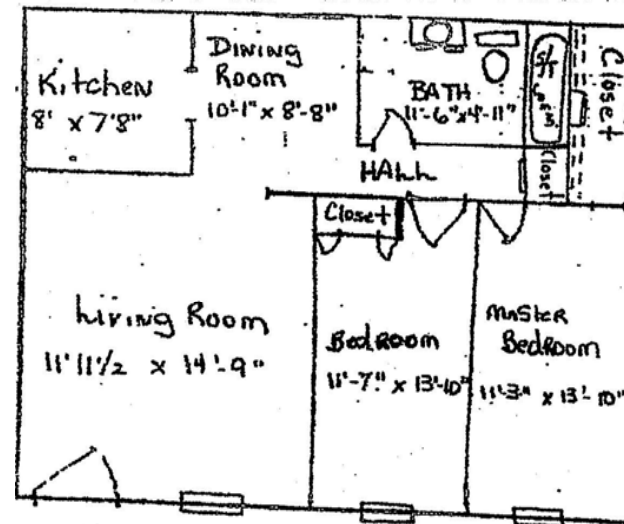 Kitchen
8' x 7'8"
Dining
Room
10'-1" x 8'-8"
BATH
11'-6" x 4'-11"
Closet
Closet
HALL
Closet
Living Room
11' 11 1/2 x 14'-9"
Bedroom
11'-7" x 13'-10"
Master
Bedroom
11'-3" x 13'-10"